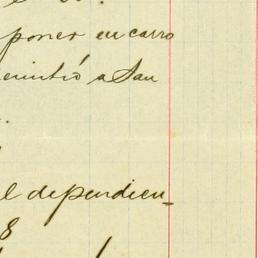 poner en carro
remitió a San
l dependien-
8